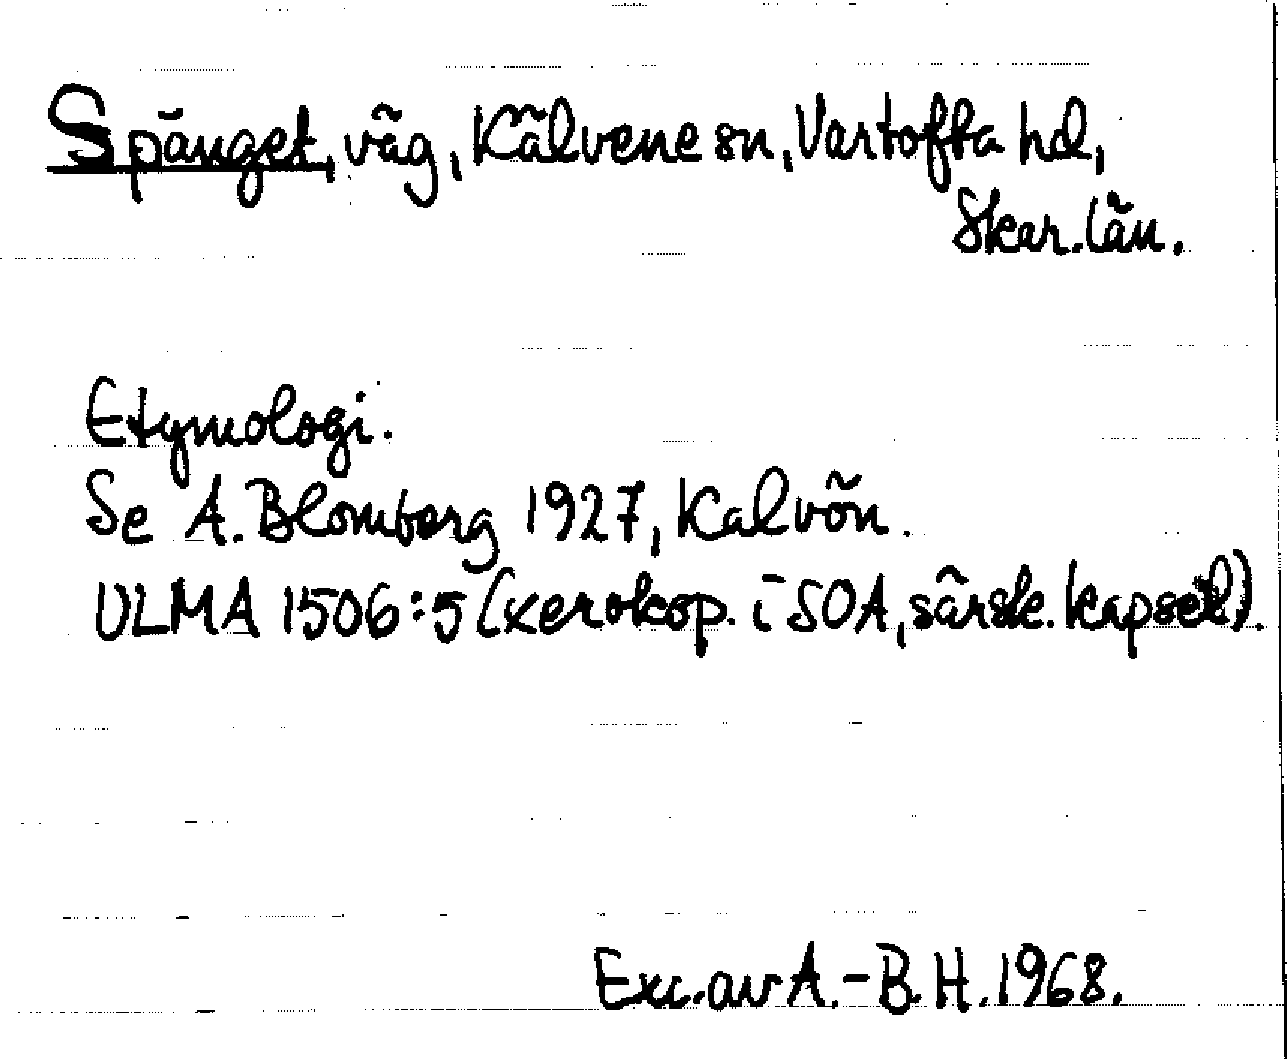 Spänget, väg, Kälvene sn, Vartofta hd,
Skar. län.
Etymologi.
Se A. Blomberg 1927, Kalvön.
ULMA 1506:5 (xerokop. i SOA, särsk. kapsel).
Exc. av A.-B. H. 1968.